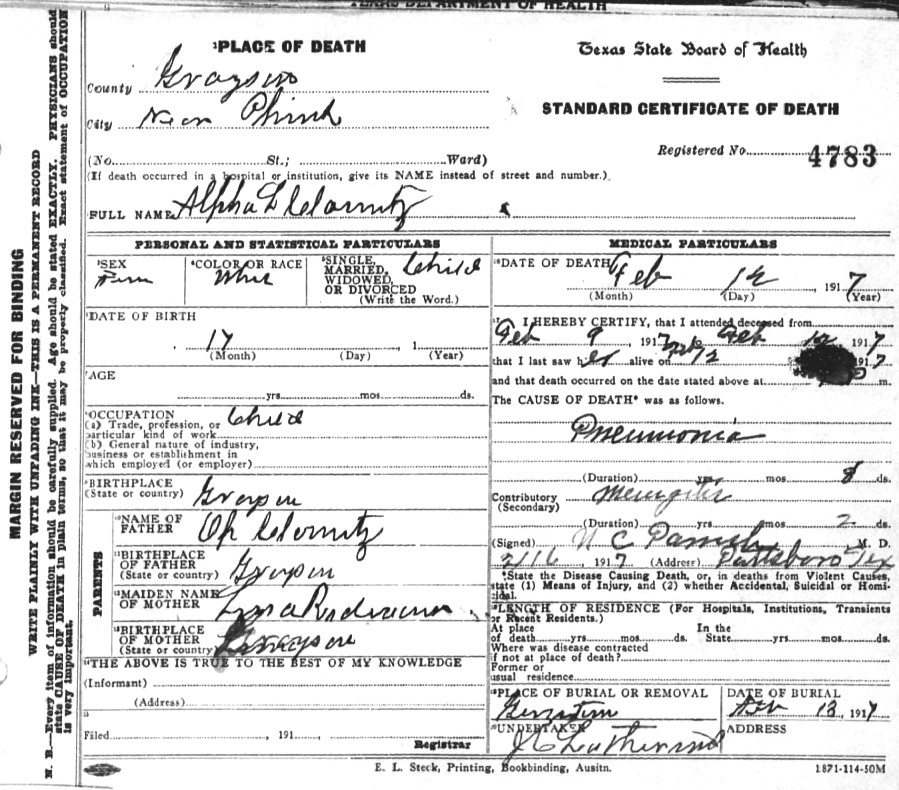 TEXAS DEPARTMENT OF HEALTH
MARGIN RESERVED FOR BINDING
WRITE PLAINLY WITH UNFADING INK—THIS IS A PERMANENT RECORD
N. B.—Every item of information should be carefully supplied. Age should be stated EXACTLY. PHYSICIANS should
state CAUSE OF DEATH in plain terms, so that it may be properly classified. Exact statement of OCCUPATION
is very important.
PLACE OF DEATH
County Grayson
City Near
(No. St.; Ward)
(If death occurred in a hospital or institution, give its NAME instead of street and number.)
Texas State Board of Health
STANDARD CERTIFICATE OF DEATH
Registered No. 4783
FULL NAME Alpha L
PERSONAL AND STATISTICAL PARTICULARS
SEX
Fem
COLOR OR RACE
SINGLE, MARRIED, WIDOWED, OR DIVORCED (Write the Word.)
Child
DATE OF BIRTH
17 , 1
(Month) (Day) (Year)
AGE
yrs. mos. ds.
OCCUPATION
(a) Trade, profession, or
particular kind of work Child
(b) General nature of industry,
business or establishment in
which employed (or employer)
BIRTHPLACE
(State or country) Grayson
PARENTS
NAME OF
FATHER
BIRTHPLACE
OF FATHER
(State or country) Grayson
MAIDEN NAME
OF MOTHER
BIRTHPLACE
OF MOTHER
(State or country) Grayson
THE ABOVE IS TRUE TO THE BEST OF MY KNOWLEDGE
(Informant)
(Address)
Filed 191
Registrar
MEDICAL PARTICULARS
DATE OF DEATH Feb 12 1917
(Month) (Day) (Year)
I HEREBY CERTIFY, that I attended deceased from
Feb 9 1917 Feb 12 1917
that I last saw her alive on Feb 12 1917
and that death occurred on the date stated above at m.
The CAUSE OF DEATH* was as follows.
Pneumonia
(Duration) yrs mos 8 ds.
Contributory Meningitis
(Secondary)
(Duration) yrs. mos. 2 ds.
(Signed) M. D.
2/16 1917 (Address) Tex
*State the Disease Causing Death, or, in deaths from Violent Causes,
state (1) Means of Injury, and (2) whether Accidental, Suicidal or Homi-
cidal.
LENGTH OF RESIDENCE (For Hospitals, Institutions, Transients
or Recent Residents.)
At place In the
of death yrs. mos. ds. State yrs. mos. ds.
Where was disease contracted
if not at place of death?
Former or
usual residence
PLACE OF BURIAL OR REMOVAL
DATE OF BURIAL
Feb 13, 1917
UNDERTAKER
ADDRESS
E. L. Steck, Printing, Bookbinding, Ausitn.
1871-114-50M